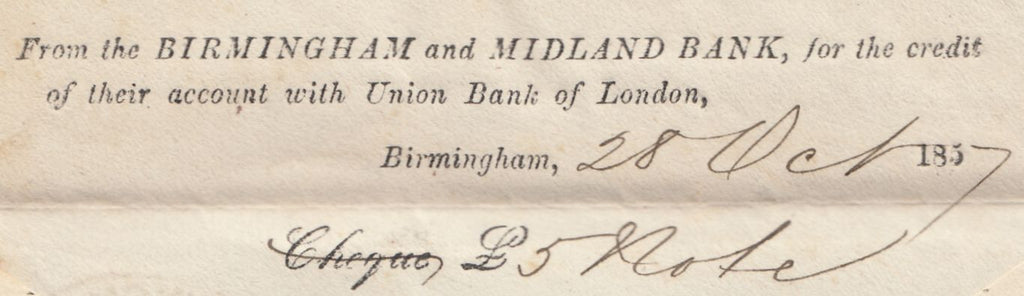 From the BIRMINGHAM and MIDLAND BANK, for the credit
of their account with Union Bank of London,
Birmingham, 28 Oct 1857
Cheque, £5 Note